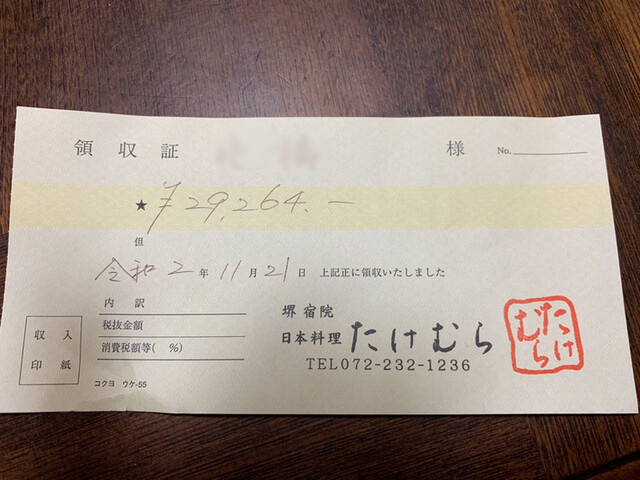 領収証 様 No.
★ ¥29,264.-
但
令和2年11月21日 上記正に領収いたしました
内訳
税抜金額
消費税額等( %)
収入
印紙
コクヨ ウケ-55
堺宿院
日本料理 たけむら
TEL072-232-1236
たけむら